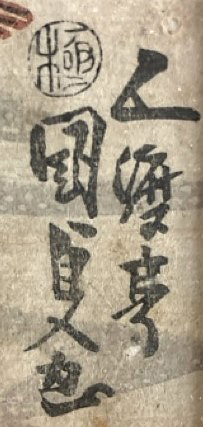 五渡亭
極
國貞画